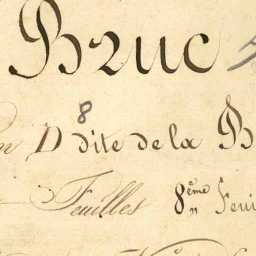 Bruc
D 8 dite de la B
Feuilles 8ème Feui